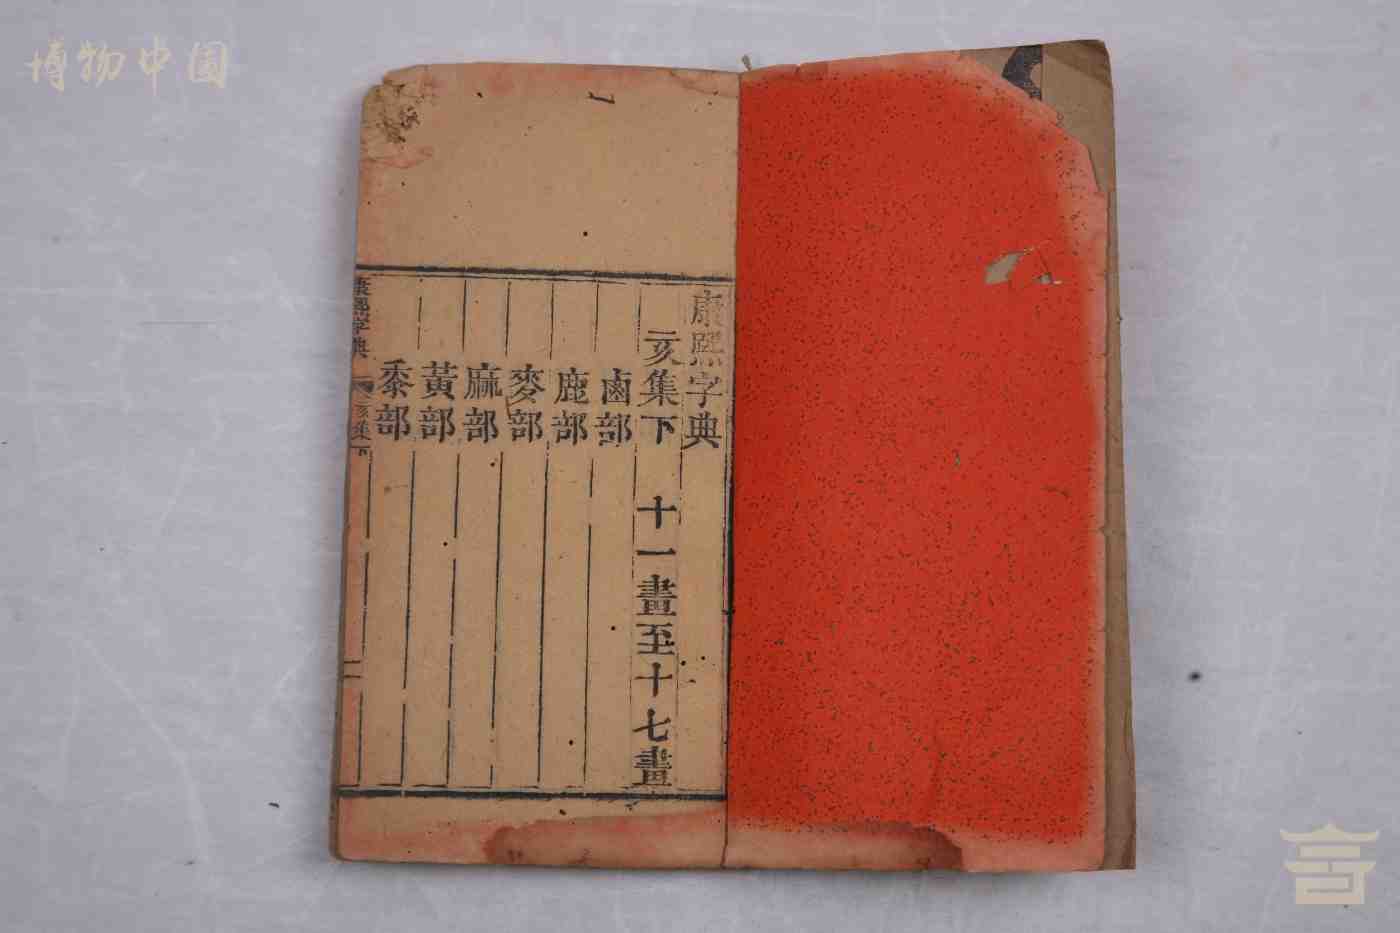 博物中国
康熙字典
亥集下 十一畫至十七畫
鹵部
鹿部
麥部
麻部
黃部
黍部
康熙字典 亥集下 一